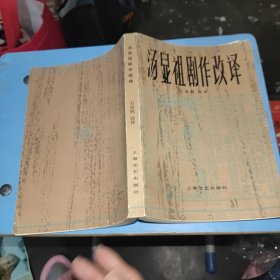 汤显祖剧作改译
上海文艺出版社
汤显祖剧作改译
上海文艺出版社